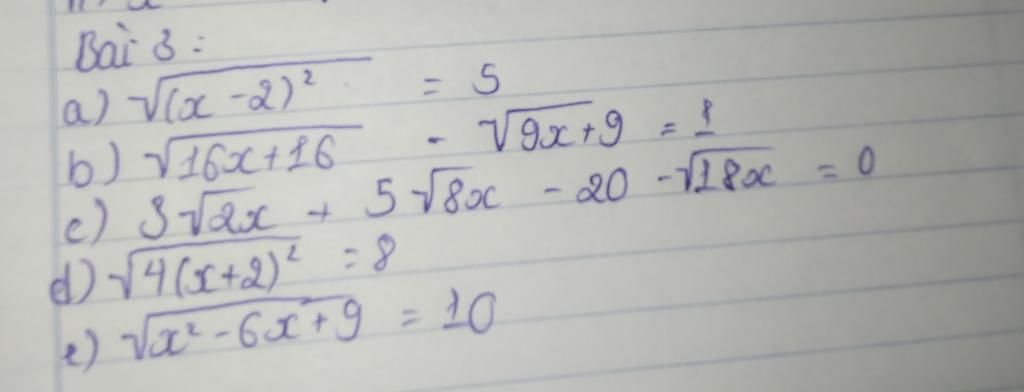 Bài 3:
a) √(x-2)² = 5
b) √16x+16 - √9x+9 = 1
c) 3√2x + 5√8x - 20 - √18x = 0
d) √4(x+2)² = 8
e) √x²-6x+9 = 10